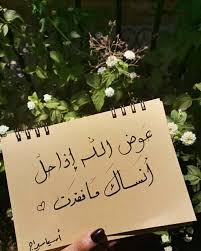 عوض الله إذا حل
أنساك ما فقدت